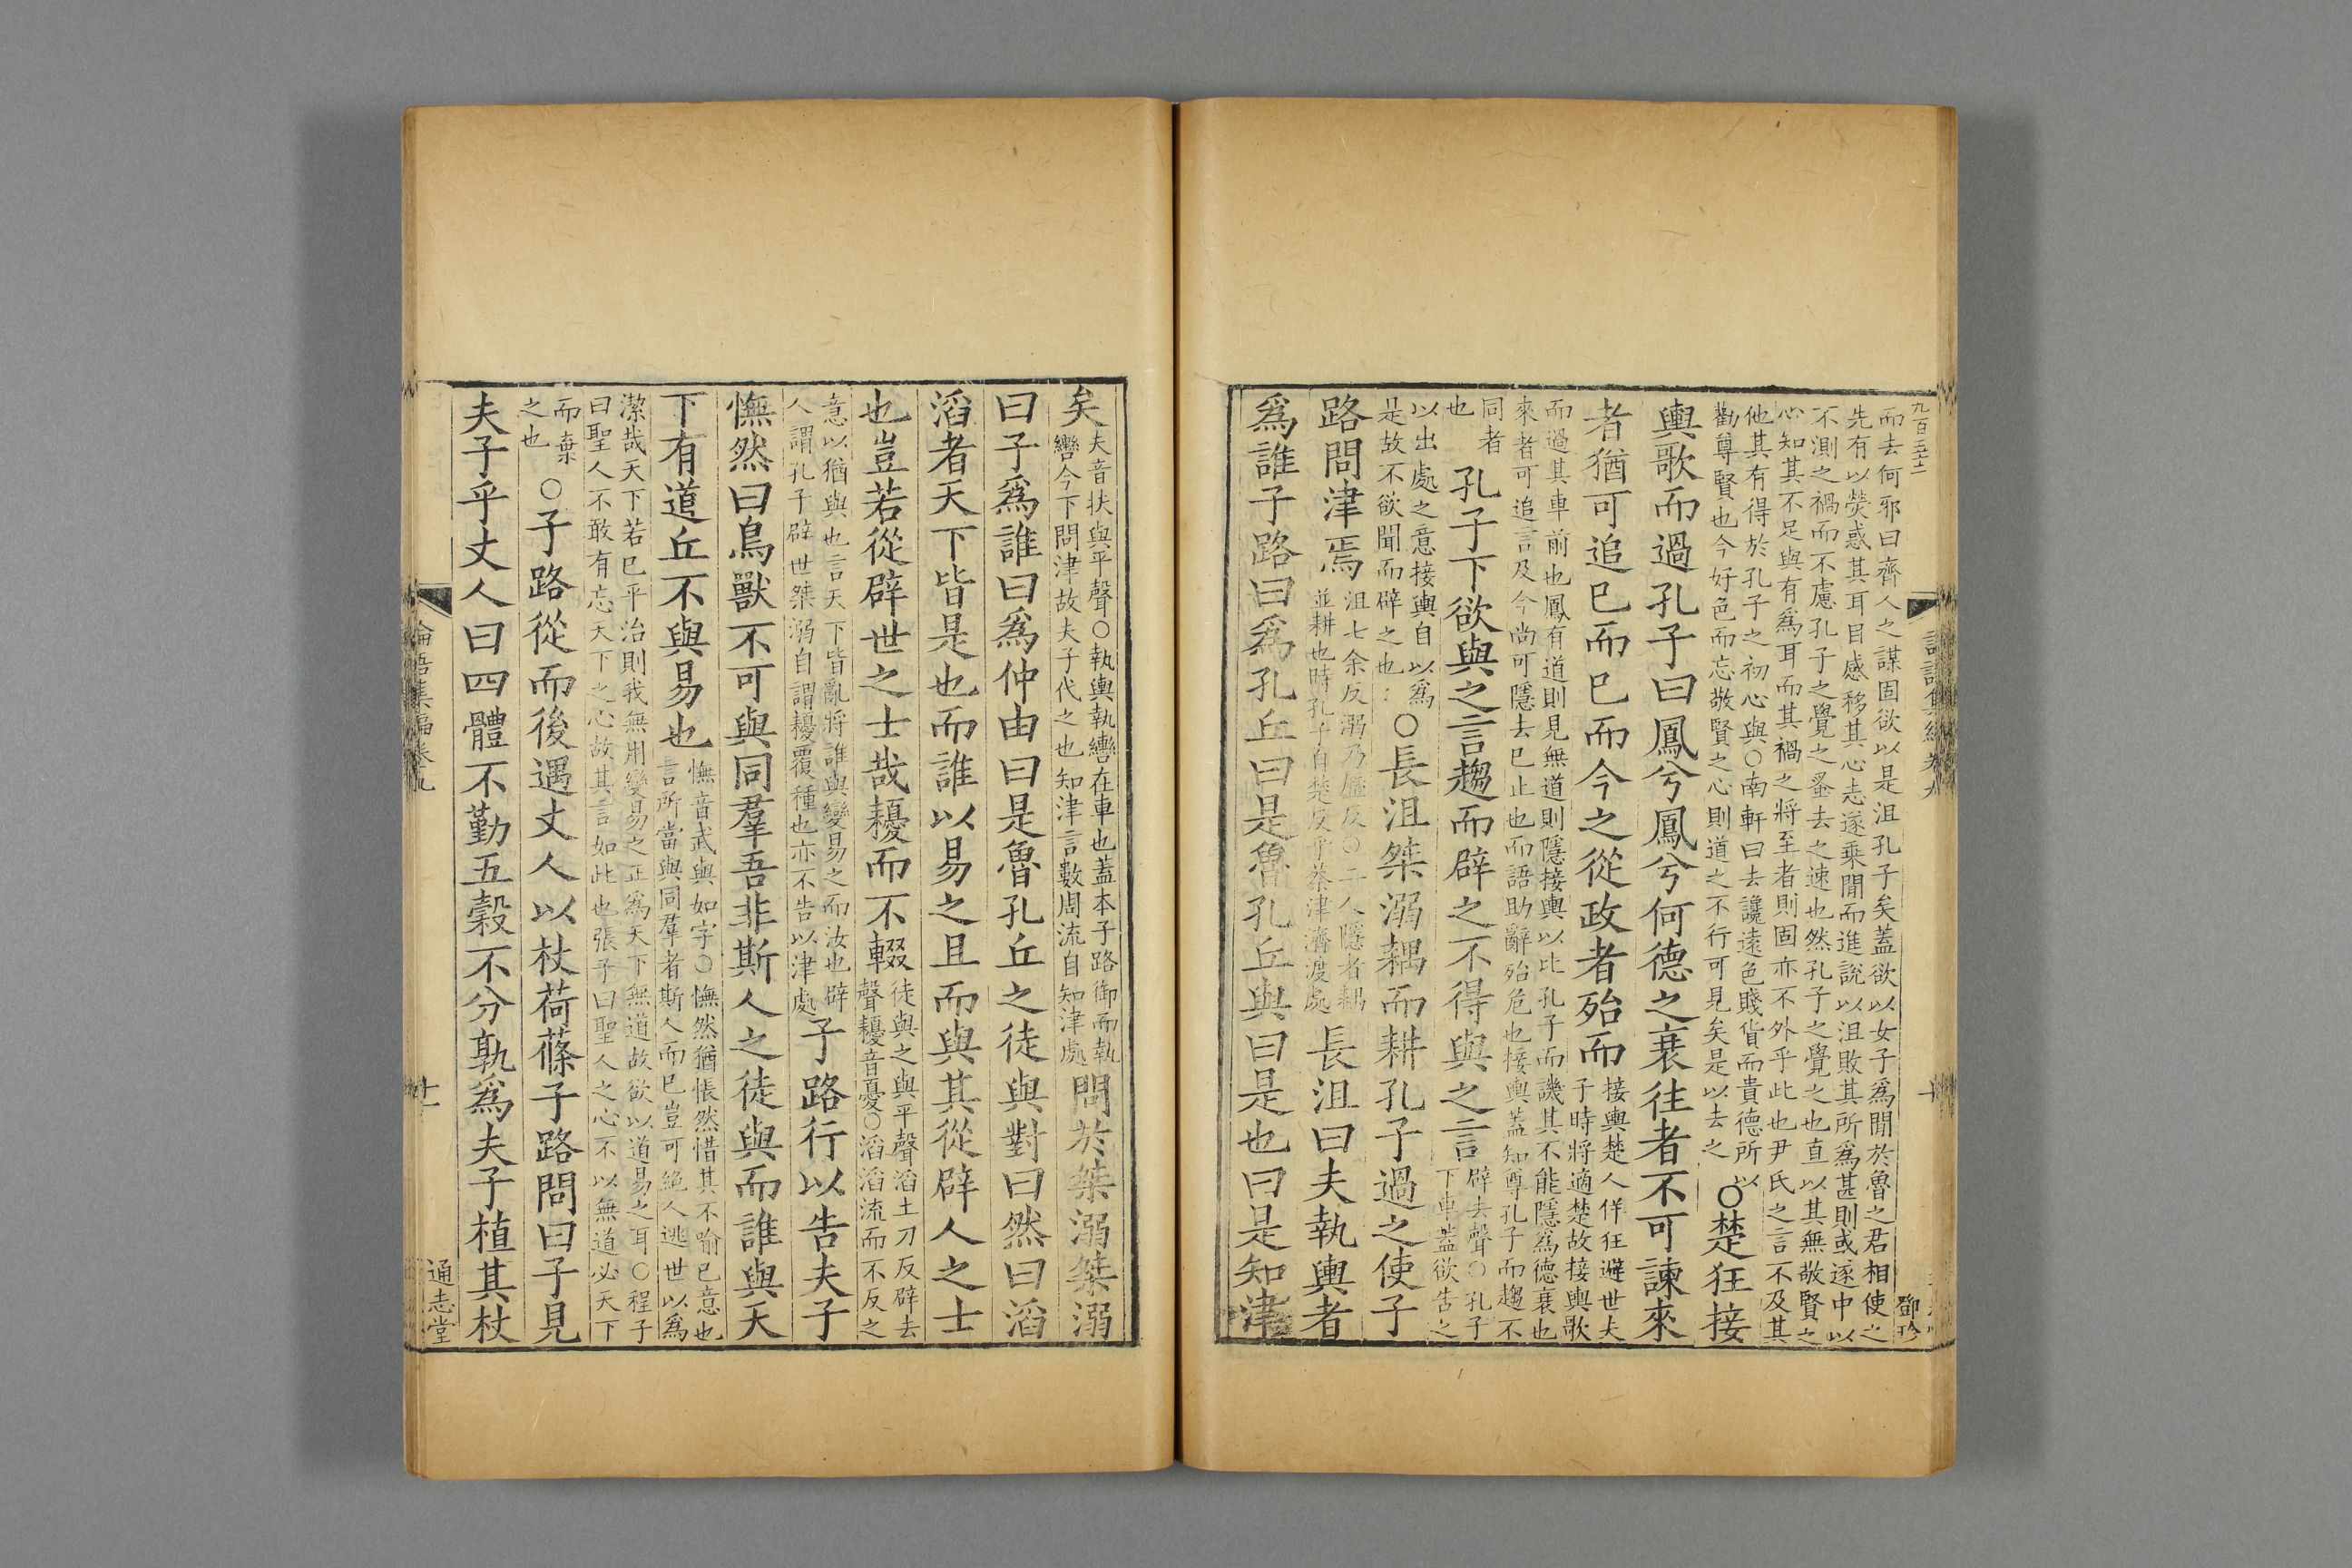 而去何邪曰齊人之謀固欲以是沮孔子矣蓋欲以女子爲間於魯之君相使之
先有以熒惑其耳目感移其心志遂乘間而進說以沮敗其所爲甚則或遂中以
不測之禍而不慮孔子之覺之蚤去之速也然孔子之覺之也直以其無敬賢之
心知其不足與有爲耳而其禍之將至者則固亦不外乎此也尹氏之言不及其
他其有得於孔子之初心與○南軒曰去讒遠色賤貨而貴德所以
勸尊賢也今好色而忘敬賢之心則道之不行可見矣是以去之
○楚狂接
輿歌而過孔子曰鳳兮鳳兮何德之衰往者不可諫來
者猶可追已而已而今之從政者殆而
接輿楚人佯狂避世夫
子時將適楚故接輿歌
而過其車前也鳳有道則見無道則隱接輿以比孔子而譏其不能隱爲德衰也
來者可追言及今尚可隱去已止也而語助辭殆危也接輿蓋知尊孔子而趨不
同者
也
孔子下欲與之言趨而辟之不得與之言
辟去聲○孔子
下車蓋欲告之
以出處之意接輿自以爲
是故不欲聞而辟之也
○長沮桀溺耦而耕孔子過之使子
路問津焉
沮七余反溺乃歷反○二人隱者耦
並耕也時孔子自楚反乎蔡津濟渡處
長沮曰夫執輿者
爲誰子路曰爲孔丘曰是魯孔丘與曰是也曰是知津
鄧珍
矣
夫音扶與平聲○執輿執轡在車也蓋本子路御而執
轡今下問津故夫子代之也知津言數周流自知津處
問於桀溺桀溺
曰子爲誰曰爲仲由曰是魯孔丘之徒與對曰然曰滔
滔者天下皆是也而誰以易之且而與其從辟人之士
也豈若從辟世之士哉耰而不輟
徒與之與平聲滔土刀反辟去
聲耰音憂○滔滔流而不反之
意以猶與也言天下皆亂將誰與變易之而汝也辟
人謂孔子辟世桀溺自謂耰覆種也亦不告以津處
子路行以告夫子
憮然曰鳥獸不可與同羣吾非斯人之徒與而誰與天
下有道丘不與易也
憮音武與如字○憮然猶悵然惜其不喻己意也
言所當與同羣者斯人而已豈可絕人逃世以爲
潔哉天下若已平治則我無用變易之正爲天下無道故欲以道易之耳○程子
曰聖人不敢有忘天下之心故其言如此也張子曰聖人之心不以無道必天下
而棄
之也
○子路從而後遇丈人以杖荷蓧子路問曰子見
夫子乎丈人曰四體不勤五穀不分孰爲夫子植其杖
論語集編卷九
十一
通志堂